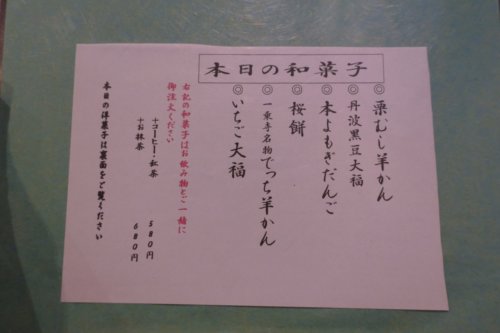 本日の和菓子
◎栗むし羊かん
◎丹波黒豆大福
◎本よもぎだんご
◎桜餅
◎一乗寺名物でっち羊かん
◎いちご大福
右記の和菓子はお飲み物とご一緒に
御注文ください
+コーヒー・紅茶 580円
+お抹茶 680円
本日の洋菓子は裏面をご覧ください